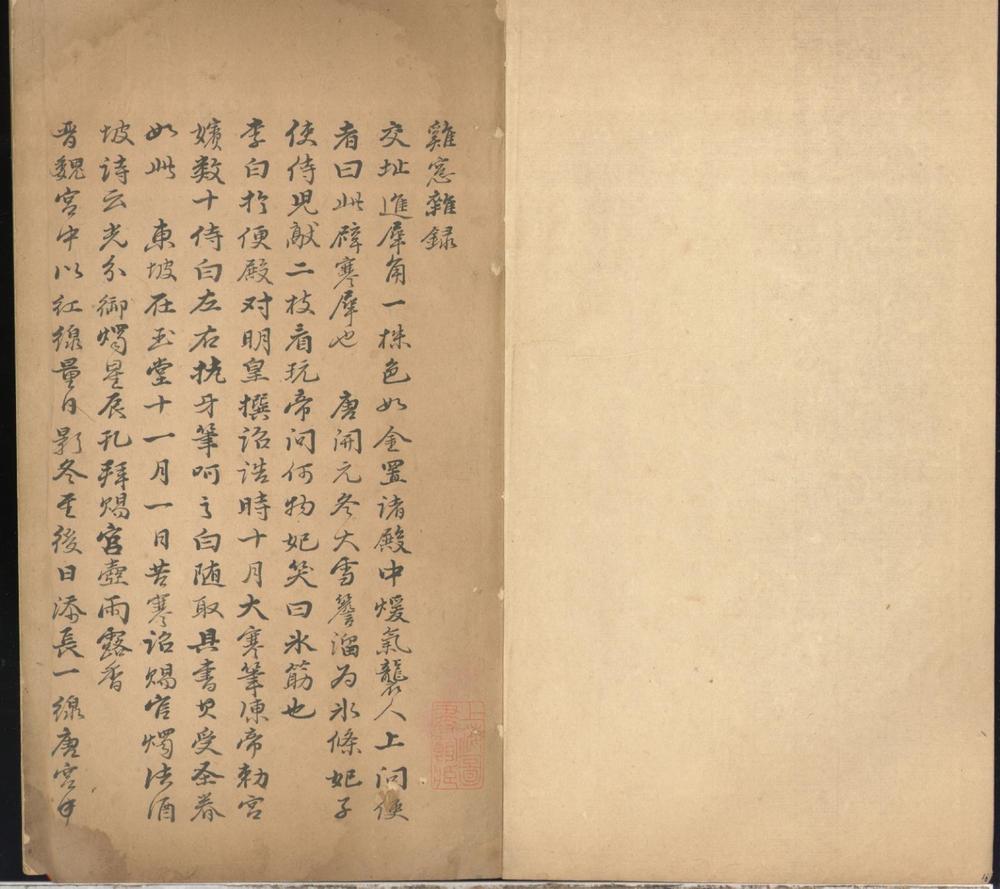 雞窓雜録
交址進犀角一株色如金置諸殿中煖氣襲人上问使
者曰此辟寒犀也　唐開元冬大雪簷溜为氷條妃子
使侍児献二枝看玩帝问何物妃笑曰氷筯也
李白扵便殿对明皇撰诏诰時十月大寒筆凍帝勅宫
嬪数十侍白左右执牙筆呵之白随取具書其受圣眷
如此　東坡在玉堂十一月一日苦寒诏赐官燭法酒
坡诗云光分御燭星辰孔拜赐宫壺雨露香
晋魏宫中以红線量日影冬至後日添長一線唐宫中
上海圖
書館藏